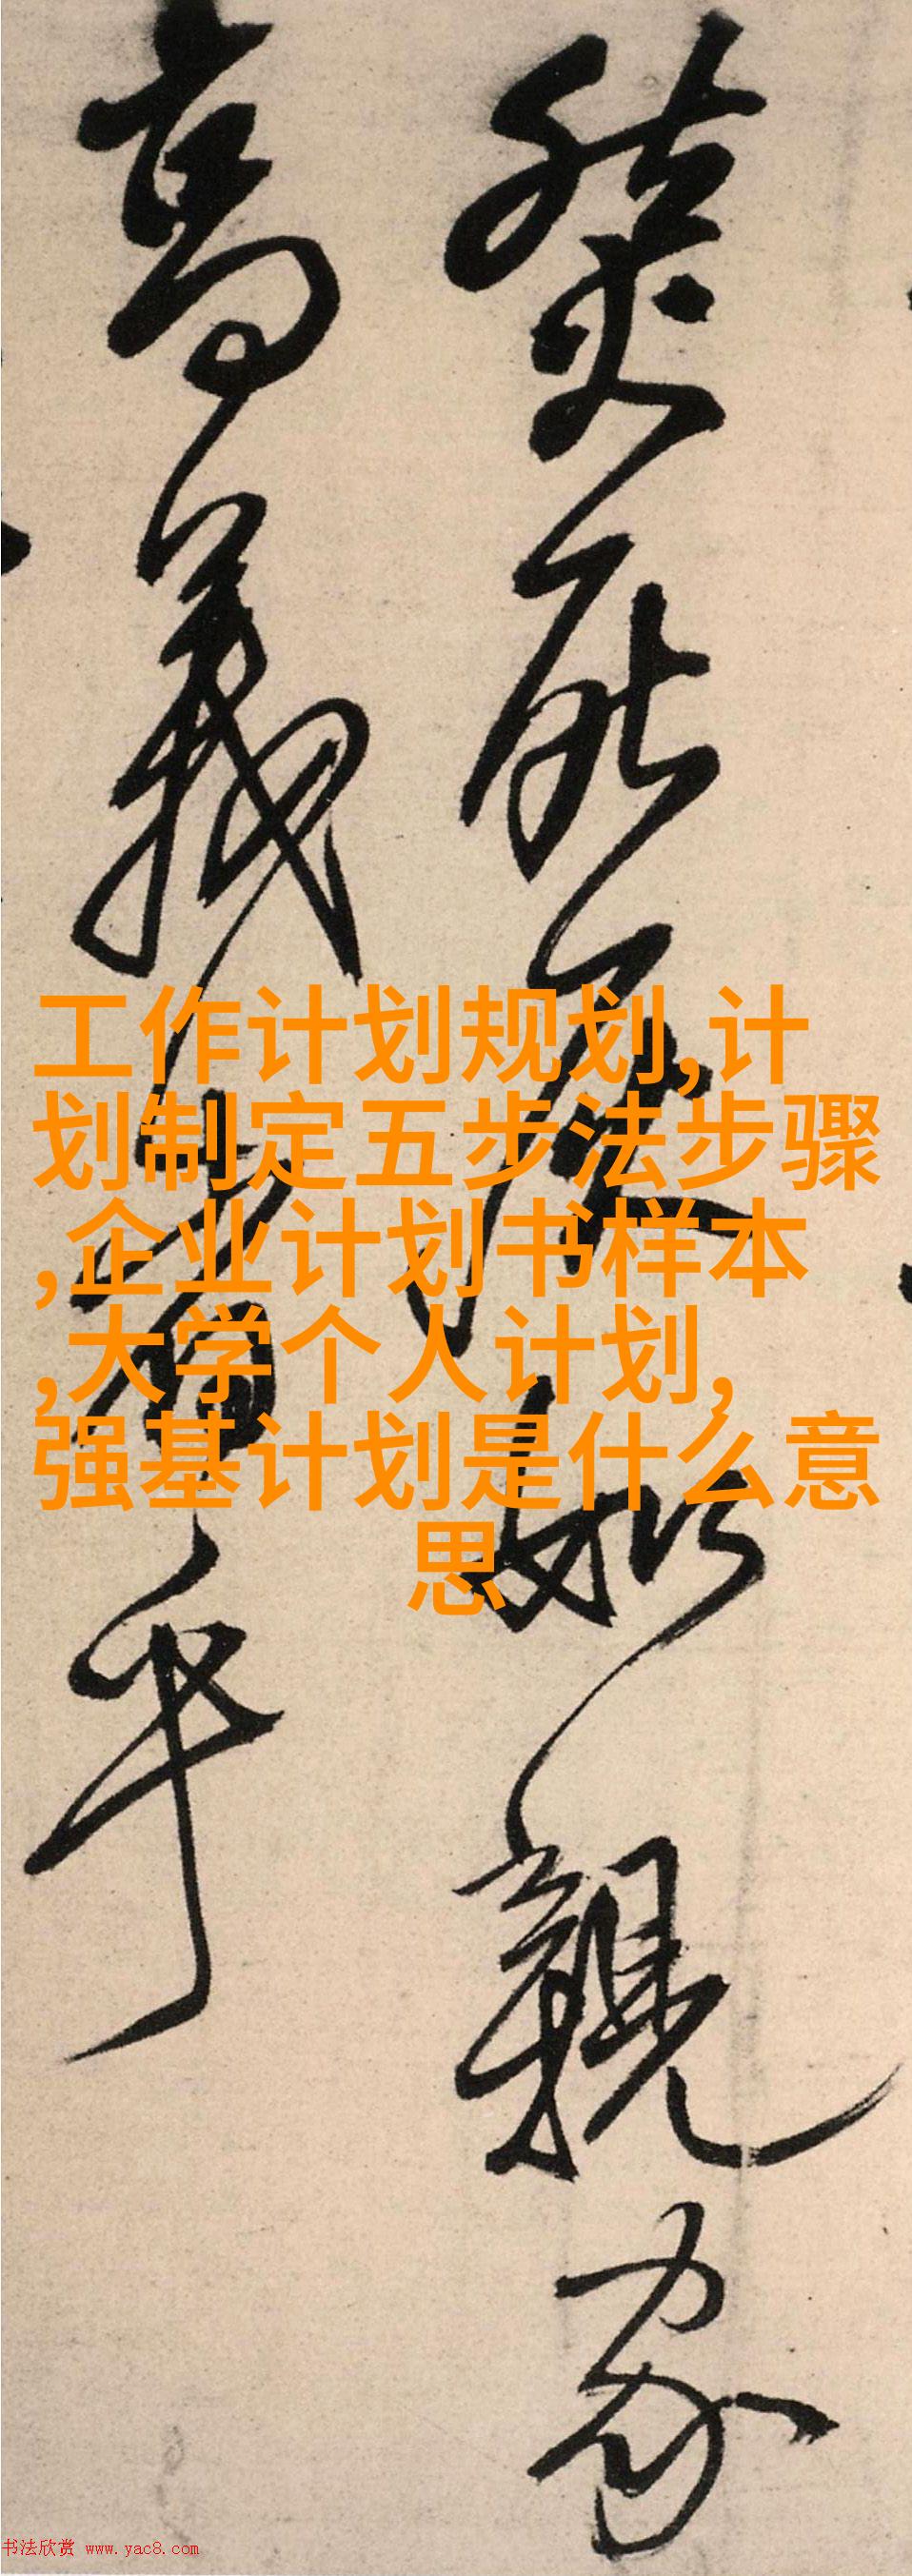 工作计划规划,计
划制定五步法步骤
,企业计划书样本
,大学个人计划,
强基计划是什么意
思
如親家
高義者乎
书法欣赏 www.yac8.com